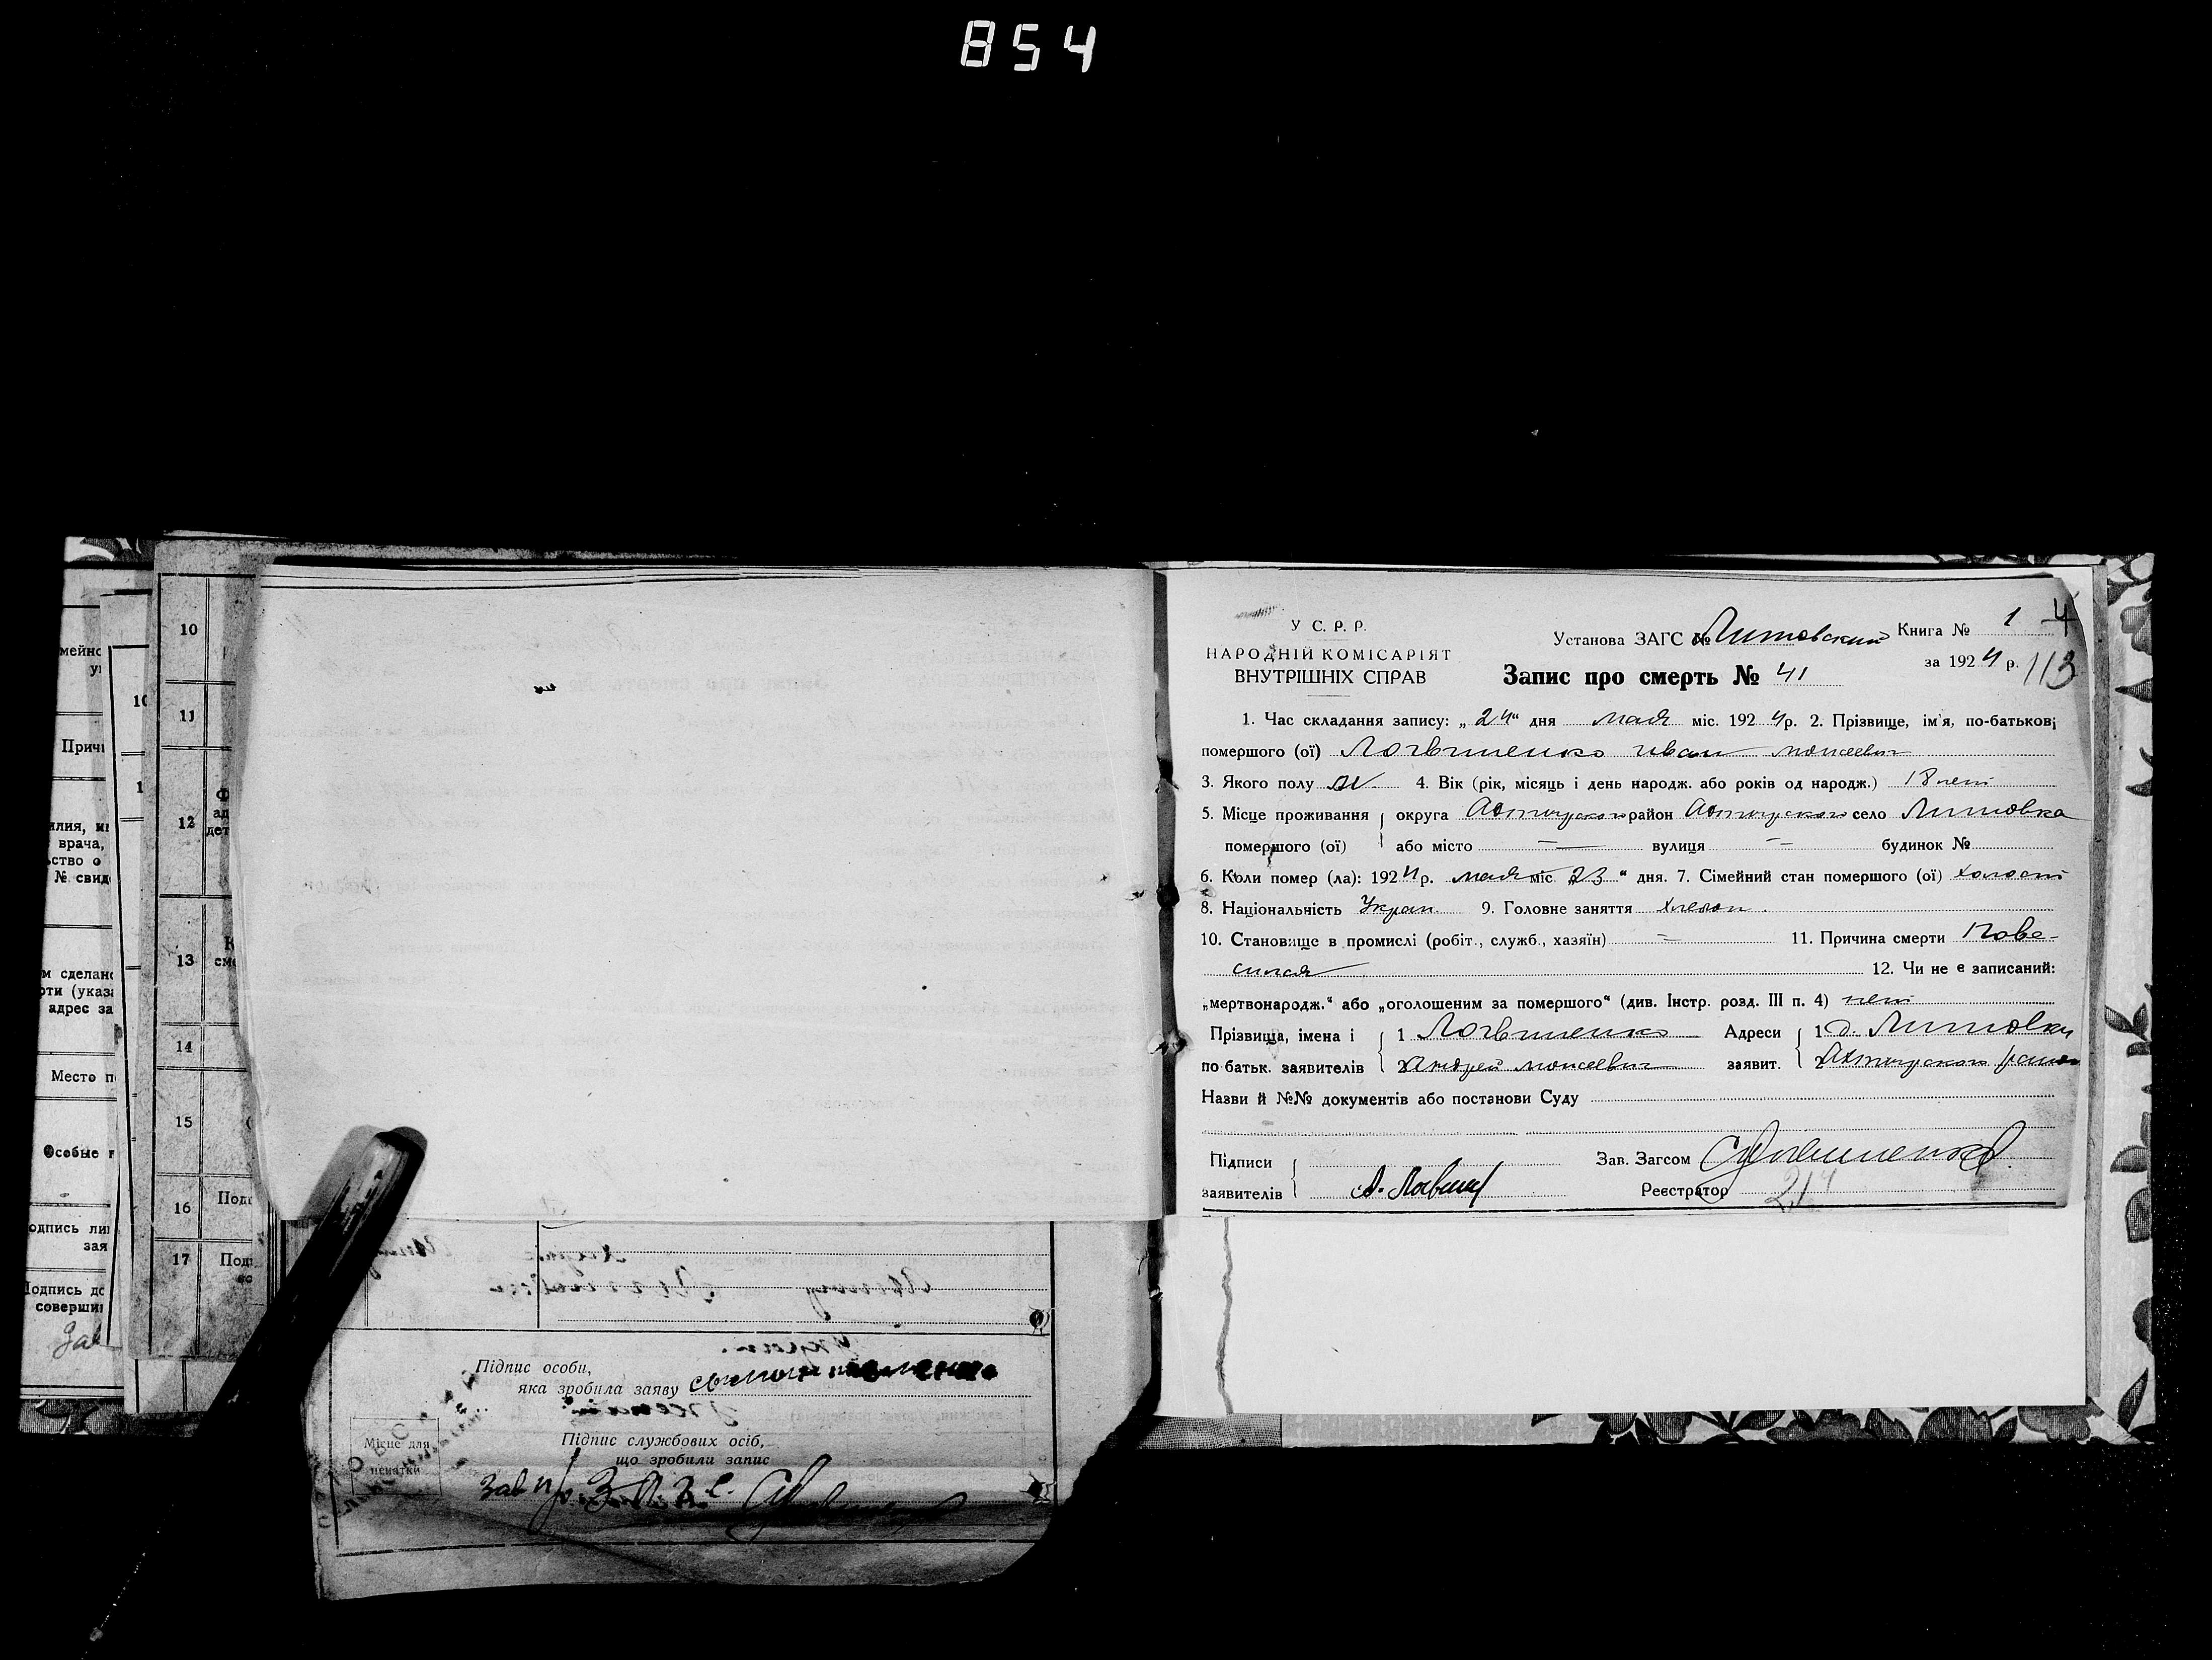 854
10
11
12
13
14
15
16
17
Причи
врача,
ство о
№ свид
м сделано
адрес за
Место п
Особые
одпись
Подпись до
соверши
Зав
Підпис особи,
яка зробила заяву
Місце для
печатки
Підпис службових осіб,
що зробили запис
У С. Р. Р.
НАРОДНІЙ КОМІСАРІЯТ
ВНУТРІШНІХ СПРАВ
Установа ЗАГС Литовский Книга № 1 4
за 1924 р. 113
Запис про смерть № 41
1. Час складання запису: „24" дня мая міс. 1924р. 2. Прізвище, ім'я, по-батькові
помершого (ої) Логвиненко иван моисеевич
3. Якого полу м 4. Вік (рік, місяць і день народж. або років од народж.) 18 лет
5. Місце проживання округа Ахтырского район Ахтырского село Литовка
помершого (ої) або місто — вулиця — будинок №
6. Коли помер (ла): 1924р. мая міс. „23" дня. 7. Сімейний стан помершого (ої) холост
8. Національність Украи. 9. Головне заняття хлебоп.
10. Становище в промислі (робіт., служб., хазяїн) — 11. Причина смерти Пове-
сился 12. Чи не є записаний:
„мертвонародж." або „оголошеним за помершого" (див. Інстр. розд. III п. 4) нет
Прізвища, імена і 1 Логвиненко Адреси 1 д. Литовки
по батьк. заявителів 2 Андрей моисеевич заявит. 2 Ахтырского района
Назви й №№ документів або постанови Суду
Підписи Зав. Загсом
заявителів А. Реєстратор